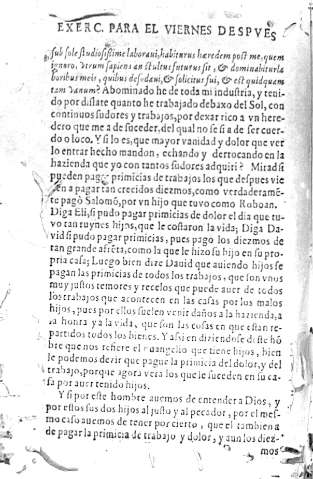 EXERC. PARA EL VIERNES DESPVES
sub sole studiosissime laboravi, habiturus hæredem post me, quem
ignoro, utrum sapiens an stultus futurus sit, & dominabitur la
boribus meis, quibus desudavi, & solicitus fui, & est quidquam
tam vanum? Abominado he de toda mi industria, y teni-
do por dislate quanto he trabajado debaxo del Sol, con
continuos sudores y trabajos, por dexar rico a vn here-
dero que me a de suceder, del qual no se si a de ser cuer-
do o loco. Y si lo es, que mayor vanidad y dolor que ver
lo entrar hecho mandon, echando y derrocando en la
hazienda que yo con tantos sudores adquiri? Mirad si
pueden pagar primicias de trabajo los que despues vie
en a pagar tan crecidos diezmos, como verdaderamē-
te pagò Salomō, por vn hijo que tuvo como Roboan.
Diga Eli, si pudo pagar primicias de dolor el dia que tu-
vo tan ruynes hijos, que le costaron la vida; Diga Da-
vid si pudo pagar primicias, pues pago los diezmos de
tan grande afrēta, como la que le hizo su hijo en su pro-
pria casa; Luego bien dize Dauid que auiendo hijos se
pagan las primicias de todos los trabajos, que son vnos
muy justos temores y recelos que puede auer de todos
los trabajos que acontecen en las casas por los malos
hijos, pues por ellos suelen venir daños a la hazienda, a
la honra y a la vida, que son las cosas en que estan re-
partidos todos los bienes. Y assi en diziendo deste hō
bre que nos refiere el euangelio que tiene hijos, bien
le podemos dezir que pague la primicia del dolor, y del
trabajo, porque agora vera los que le suceden en su ca-
sa por auer tenido hijos.
Y si por este hombre auemos de entender a Dios, y
por estos sus dos hijos al justo y al pecador, por el mes-
mo caso auemos de tener por cierto, que el tambien a
de pagar la primicia de trabajo y dolor, y aun los diez-
mos